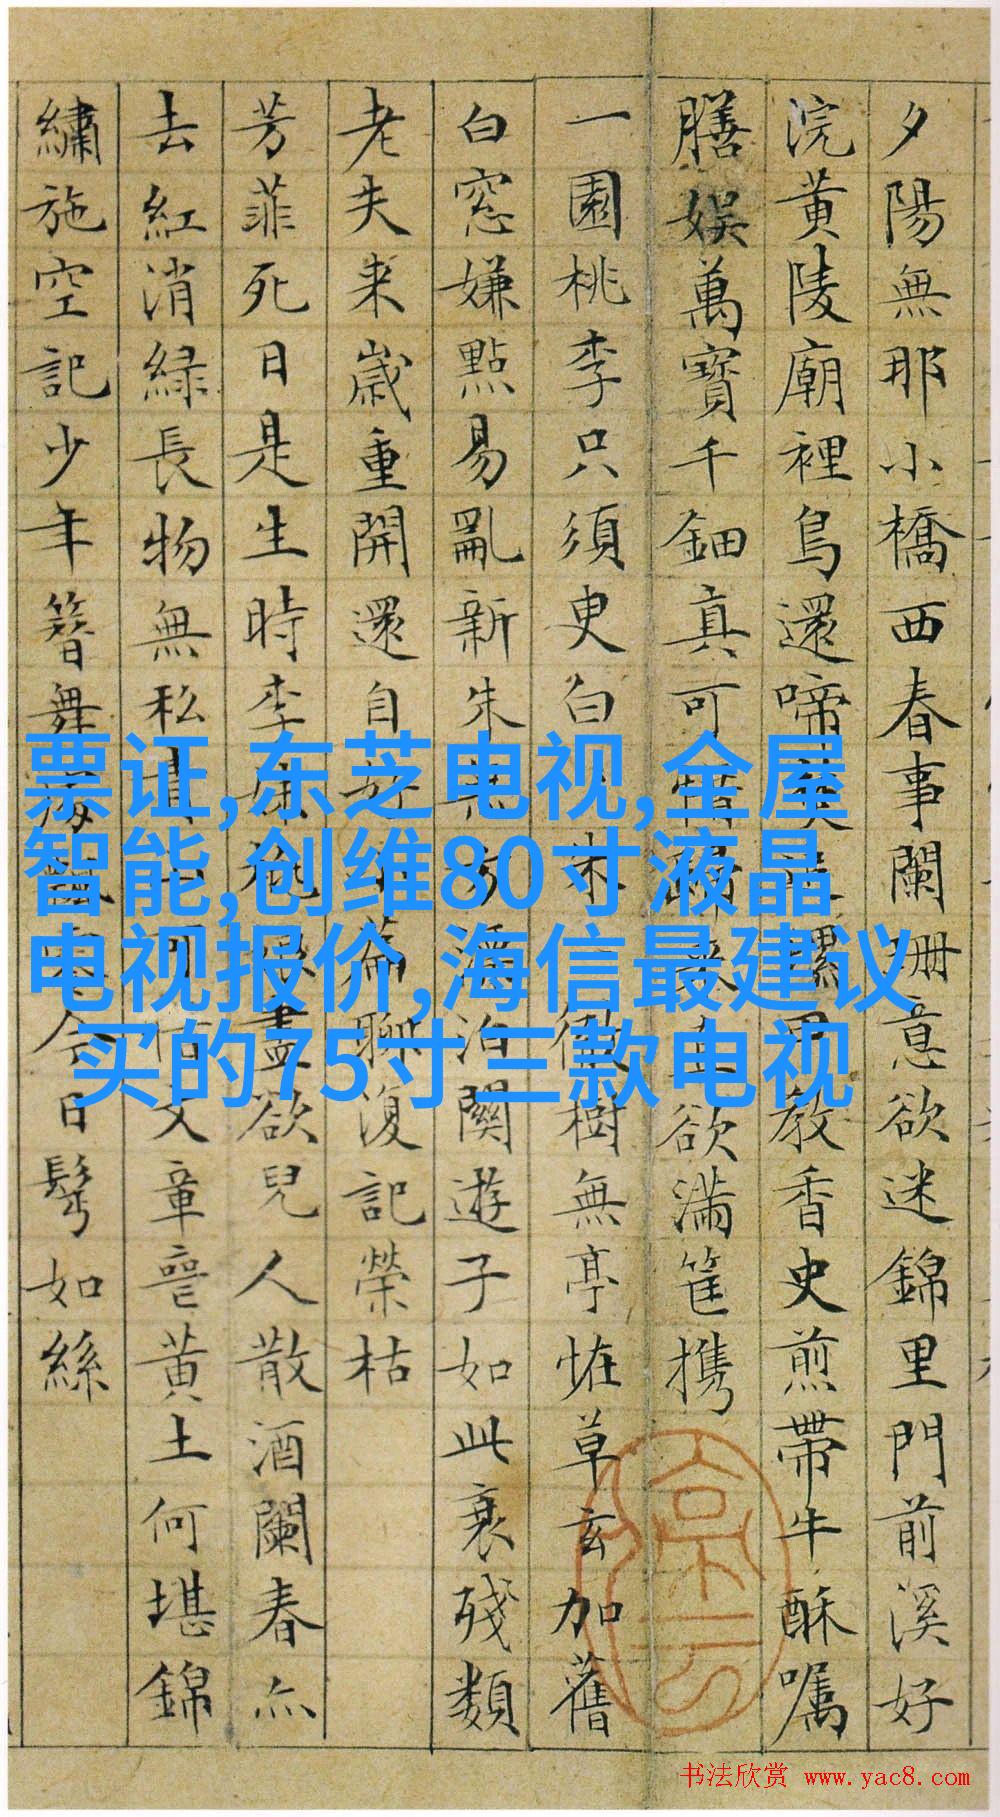 夕陽無那小橋西春事闌珊意欲迷錦里門前溪好
浣黄陵廟裡鳥還啼螺甲教香史煎帶牛酥嘱
膳娱萬寶千鈿真可惜歸来直欲滿筐携
一園桃李只須臾白白朱朱徹樹無亭恠草玄加舊
白窓嫌點易亂新朱無方漂泊關遊子如此衰殘類
老夫来歳重開還自好小篇聊復記榮枯
芳菲死日是生時李妹桃娘盡欲兒人散酒闌春亦
去紅消緑長物無私文章黄土何堪錦
繡施空記少年簪舞今日如絲
票证,东芝电视,全屋
智能,创维80寸液晶
电视报价,海信最建议
买的75寸三款电视
书法欣赏 www.yac8.com